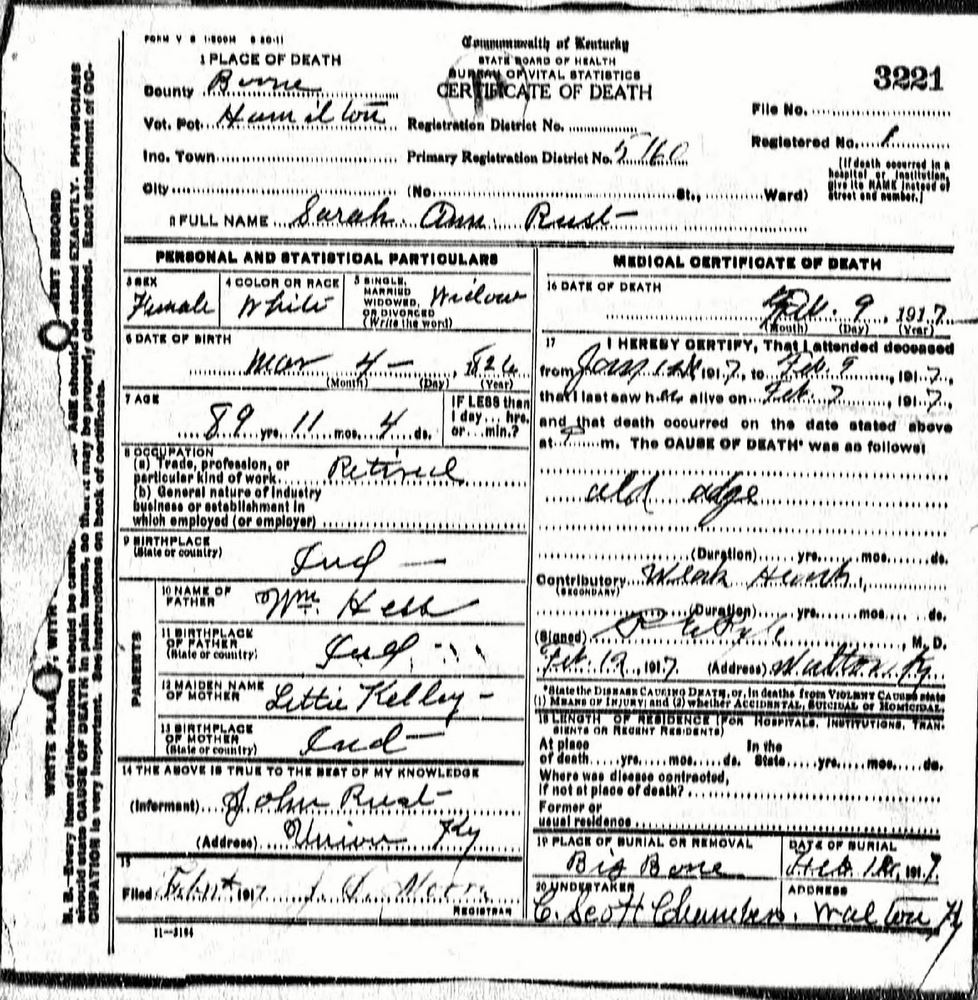 FORM V S 1-500M 8 20-11
Commonwealth of Kentucky
STATE BOARD OF HEALTH
BUREAU OF VITAL STATISTICS
CERTIFICATE OF DEATH
3221
1 PLACE OF DEATH
County Boone
Vot. Pct. Hamilton
Inc. Town
City
Registration District No.
Primary Registration District No. 5160
(No. St., Ward)
File No.
Registered No. 1
[If death occurred in a
hospital or institution,
give its NAME instead of
street and number.]
2 FULL NAME Sarah Ann Rust
PERSONAL AND STATISTICAL PARTICULARS
3 SEX
Female
4 COLOR OR RACE
White
5 SINGLE,
MARRIED
WIDOWED,
OR DIVORCED
(Write the word)
Widow
6 DATE OF BIRTH
Mar 4 - 1826
(Month) (Day) (Year)
7 AGE
89 yrs. 11 mos. 4 ds.
IF LESS than
1 day... hrs.
or... min.?
8 OCCUPATION
(a) Trade, profession, or
particular kind of work Retired
(b) General nature of industry
business or establishment in
which employed (or employer)
9 BIRTHPLACE
(State or country)
Ind -
PARENTS
10 NAME OF
FATHER
Wm. Hess
11 BIRTHPLACE
OF FATHER
(State or country)
Ind
12 MAIDEN NAME
OF MOTHER
Lettie Kelley -
13 BIRTHPLACE
OF MOTHER
(State or country)
Ind -
14 THE ABOVE IS TRUE TO THE BEST OF MY KNOWLEDGE
(Informant) John Rust
(Address) Union Ky
15
Filed 1917
REGISTRAR
11-3184
MEDICAL CERTIFICATE OF DEATH
16 DATE OF DEATH
Feb. 9, 1917
(Month) (Day) (Year)
17 I HEREBY CERTIFY, That I attended deceased
from Jan 1917, to Feb. 9, 1917,
that I last saw her alive on Feb. 7, 1917,
and that death occurred on the date stated above
at m. The CAUSE OF DEATH* was as follows:
old adge
(Duration) yrs. mos. ds.
Contributory Weak Heart
(SECONDARY)
(Duration) yrs. mos. ds.
(Signed) M. D.
Feb. 12, 1917 (Address) Walton, Ky
*State the DISEASE CAUSING DEATH, or, in deaths from VIOLENT CAUSES state
(1) MEANS OF INJURY; and (2) whether ACCIDENTAL, SUICIDAL or HOMICIDAL.
18 LENGTH OF RESIDENCE (FOR HOSPITALS, INSTITUTIONS, TRAN-
SIENTS OR RECENT RESIDENTS)
At place In the
of death yrs. mos. ds. State yrs. mos. ds.
Where was disease contracted,
if not at place of death?
Former or
usual residence
19 PLACE OF BURIAL OR REMOVAL
Big Bone
DATE OF BURIAL
Feb 1917
20 UNDERTAKER
C. Scott Chambers.
ADDRESS
Walton Ky
WRITE PLAINLY, WITH
RECORD
N. B.-Every item of information should be AGE should be stated EXACTLY. PHYSICIANS
should state CAUSE OF DEATH in plain terms, so that it may be properly classified. Exact statement of OC-
CUPATION is very important. See instructions on back of certificate.